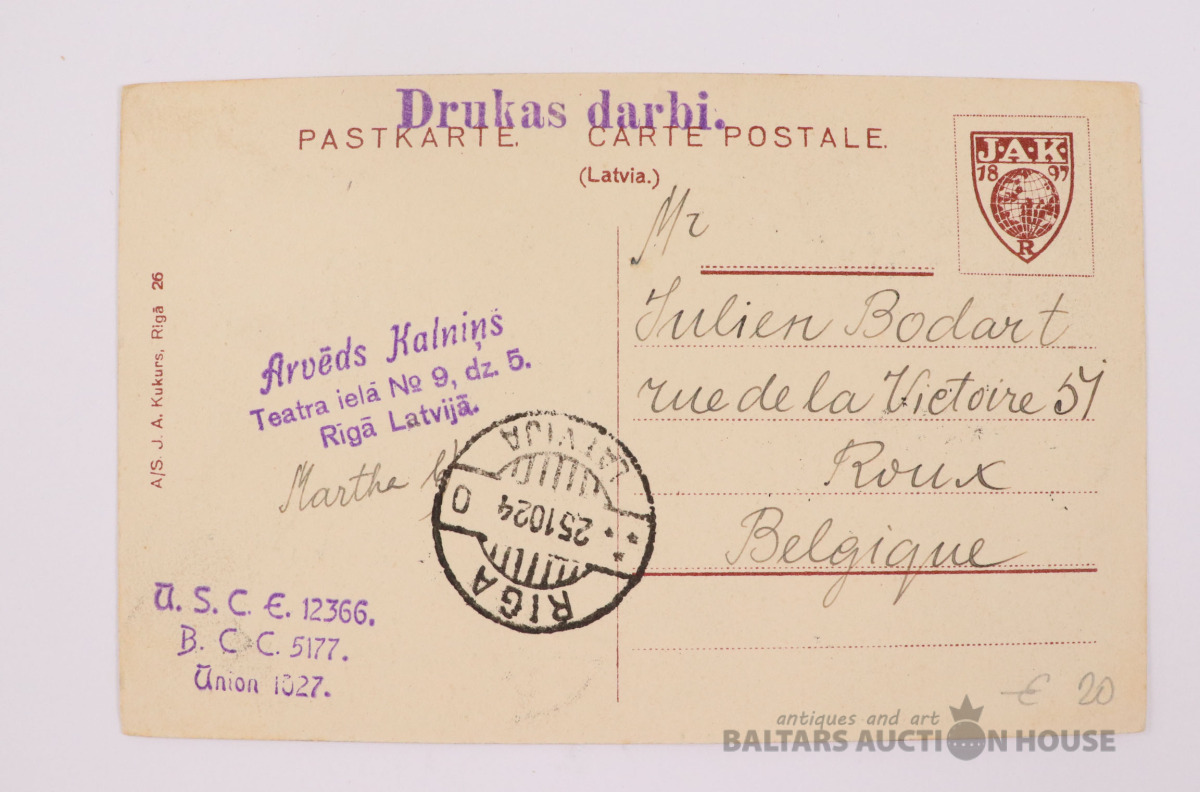 Drukas darbi.
PASTKARTE. CARTE POSTALE.
(Latvia.)
J·A·K·
18 97
R
Mr
Julien Bodart
rue de la Victoire 51
Roux
Belgique
A/S. J. A. Kukurs, Rīgā 26
Arvēds Kalniņš
Teatra ielā № 9, dz. 5.
Rīgā Latvijā.
Martha
LATVIJA
251024
O
RIGA
U. S. C. E. 12366.
B. C. C. 5177.
Union 1027.
€ 20
antiques and art
BALTARS AUCTION HOUSE